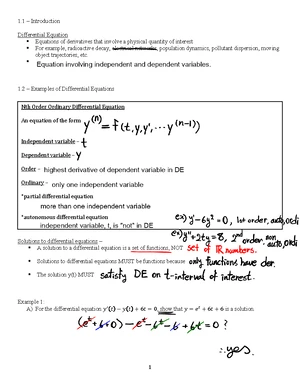 1.1 – Introduction
Differential Equation
• Equations of derivatives that involve a physical quantity of interest
• For example, radioactive decay, electrical networks, population dynamics, pollutant dispersion, moving object trajectories, etc.
• Equation involving independent and dependent variables.
1.2 – Examples of Differential Equations
Nth Order Ordinary Differential Equation
An equation of the form y^(n) = f(t, y, y', ... y^(n-1))
Independent variable – t
Dependent variable – y
Order – highest derivative of dependent variable in DE
Ordinary – only one independent variable
*partial differential equation
more than one independent variable
*autonomous differential equation
independent variable, t, is "not" in DE
ex) y' - 6y² = 0, 1st order, auto, ordi
ex) y'' + 2ty = 8, 2nd order, non auto, ordi
Solutions to differential equations –
• A solution to a differential equation is a set of functions, NOT set of IR numbers.
• Solutions to differential equations MUST be functions because only functions have der.
• The solution y(t) MUST satisfy DE on t-interval of interest.
Example 1:
A) For the differential equation y'(t) – y(t) + 6t = 0, show that y = eᵗ + 6t + 6 is a solution
(eᵗ + 6 + 0) - eᵗ - 6t - 6 + 6t = 0 ?
∴ yes.
1